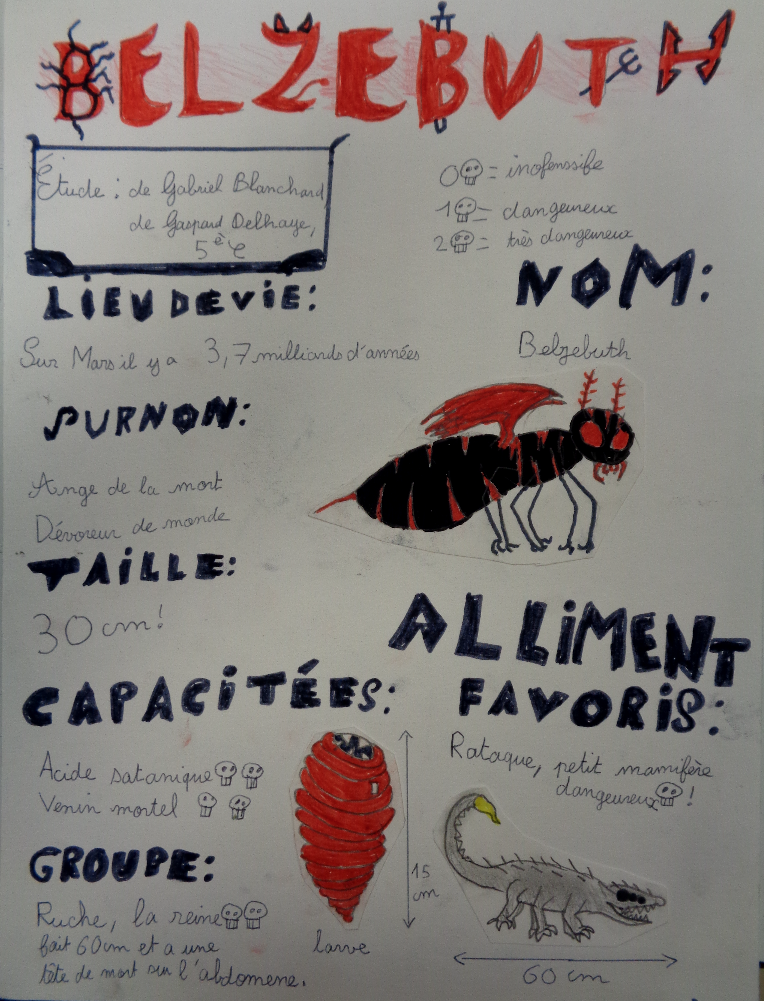 BELZEBUTH
Étude : de Gabriel Blanchard,
de Gaspard Delhaye,
5è C
0 = inofenssife
1 = dangeureux
2 = très dangeureux
LIEU DE VIE:
Sur Mars il y a 3,7 milliards d'années
NOM:
Belzebuth
SURNON:
Ange de la mort
Dévoreur de monde
TAILLE:
30 cm!
ALLIMENT
FAVORIS:
Rataque, petit mamifère
dangeureux !
60 cm
CAPACITÉES:
Acide satanique
Venin mortel
15
cm
larve
GROUPE:
Ruche, la reine
fait 60 cm et a une
tête de mort sur l'abdomene.